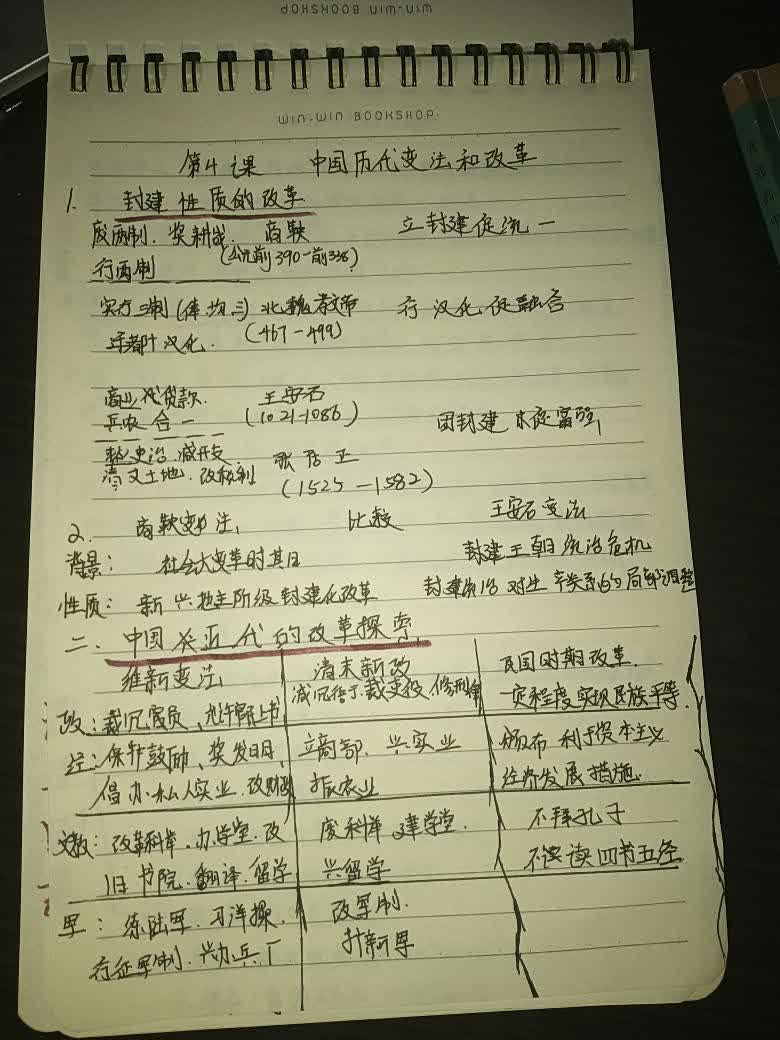 WIN-WIN BOOKSHOP
WIN-WIN BOOKSHOP.
第4课 中国历代变法和改革
1. 封建性质的改革
废两制. 奖耕战. 商鞅 立封建促统一
行两制 (公元前390-前338)
实行三制(俸.均.三) 北魏孝文帝 行汉化促融合
迁都汴汉化. (467-499)
商业代贷款. 王安石
兵农合一 (1021-1086) 固封建 求促富强
整吏治.减开支. 张居正
清丈土地.改税利 (1525-1582)
2. 商鞅变法 比较 王安石变法
背景: 社会大变革时其日 封建王朝统治危机
性质: 新兴地主阶级封建化改革 封建统治对生产关系的局部调整
二、中国近代的改革探索
维新变法 清末新政 民国时期改革.
政:裁冗官员、允许官民上书 减冗 裁 修刑律 一定程度实现民族平等.
经:保护鼓励、奖发明、 立商部、兴实业 颁布利于资本主义
倡办私人实业.改财政 振农业 经济发展措施.
文教: 改革科举.办学堂.改 废科举.建学堂. 不拜孔子
旧书院.翻译.留学 兴留学 不读四书五经
军: 练陆军.习洋操. 改军制.
行征军制.兴办兵厂 扩新军